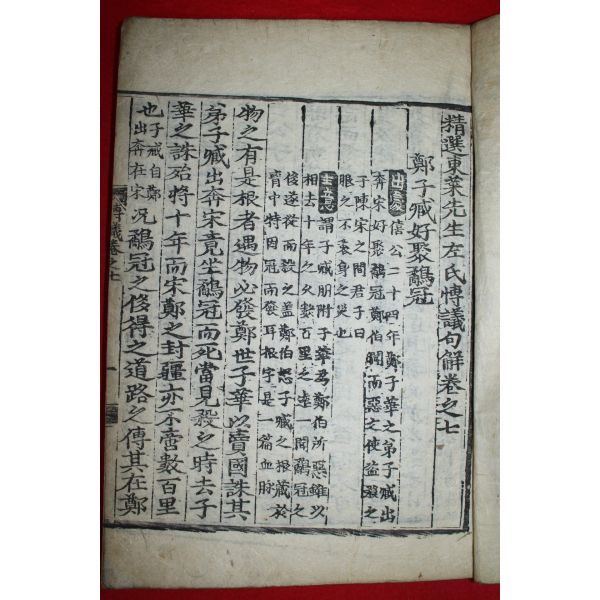 精選東萊先生左氏博議句解卷之七
鄭子臧好聚鷸冠
出處 僖公二十四年鄭子華之弟子臧出
奔宋好聚鷸冠鄭伯聞而惡之使盗殺之
于陳宋之間君子曰
服之不衷身之災也
主意 謂子臧朋附子華爲鄭伯所惡雖以
相去十年之久數百里之遠一聞鷸冠之
後遂從而殺之盖鄭伯怒子臧之根蔵於
胷中特因冠而發耳根字是一篇血脉
物之有是根者遇物必發鄭世子華以賣國誅其
弟子臧出奔宋竟坐鷸冠而死當見殺之時去子
華之誅殆將十年而宋鄭之封疆亦不啻數百里
也子臧自鄭
出奔在宋
况鷸冠之侈得之道路之傳其在鄭
博議卷之七
一